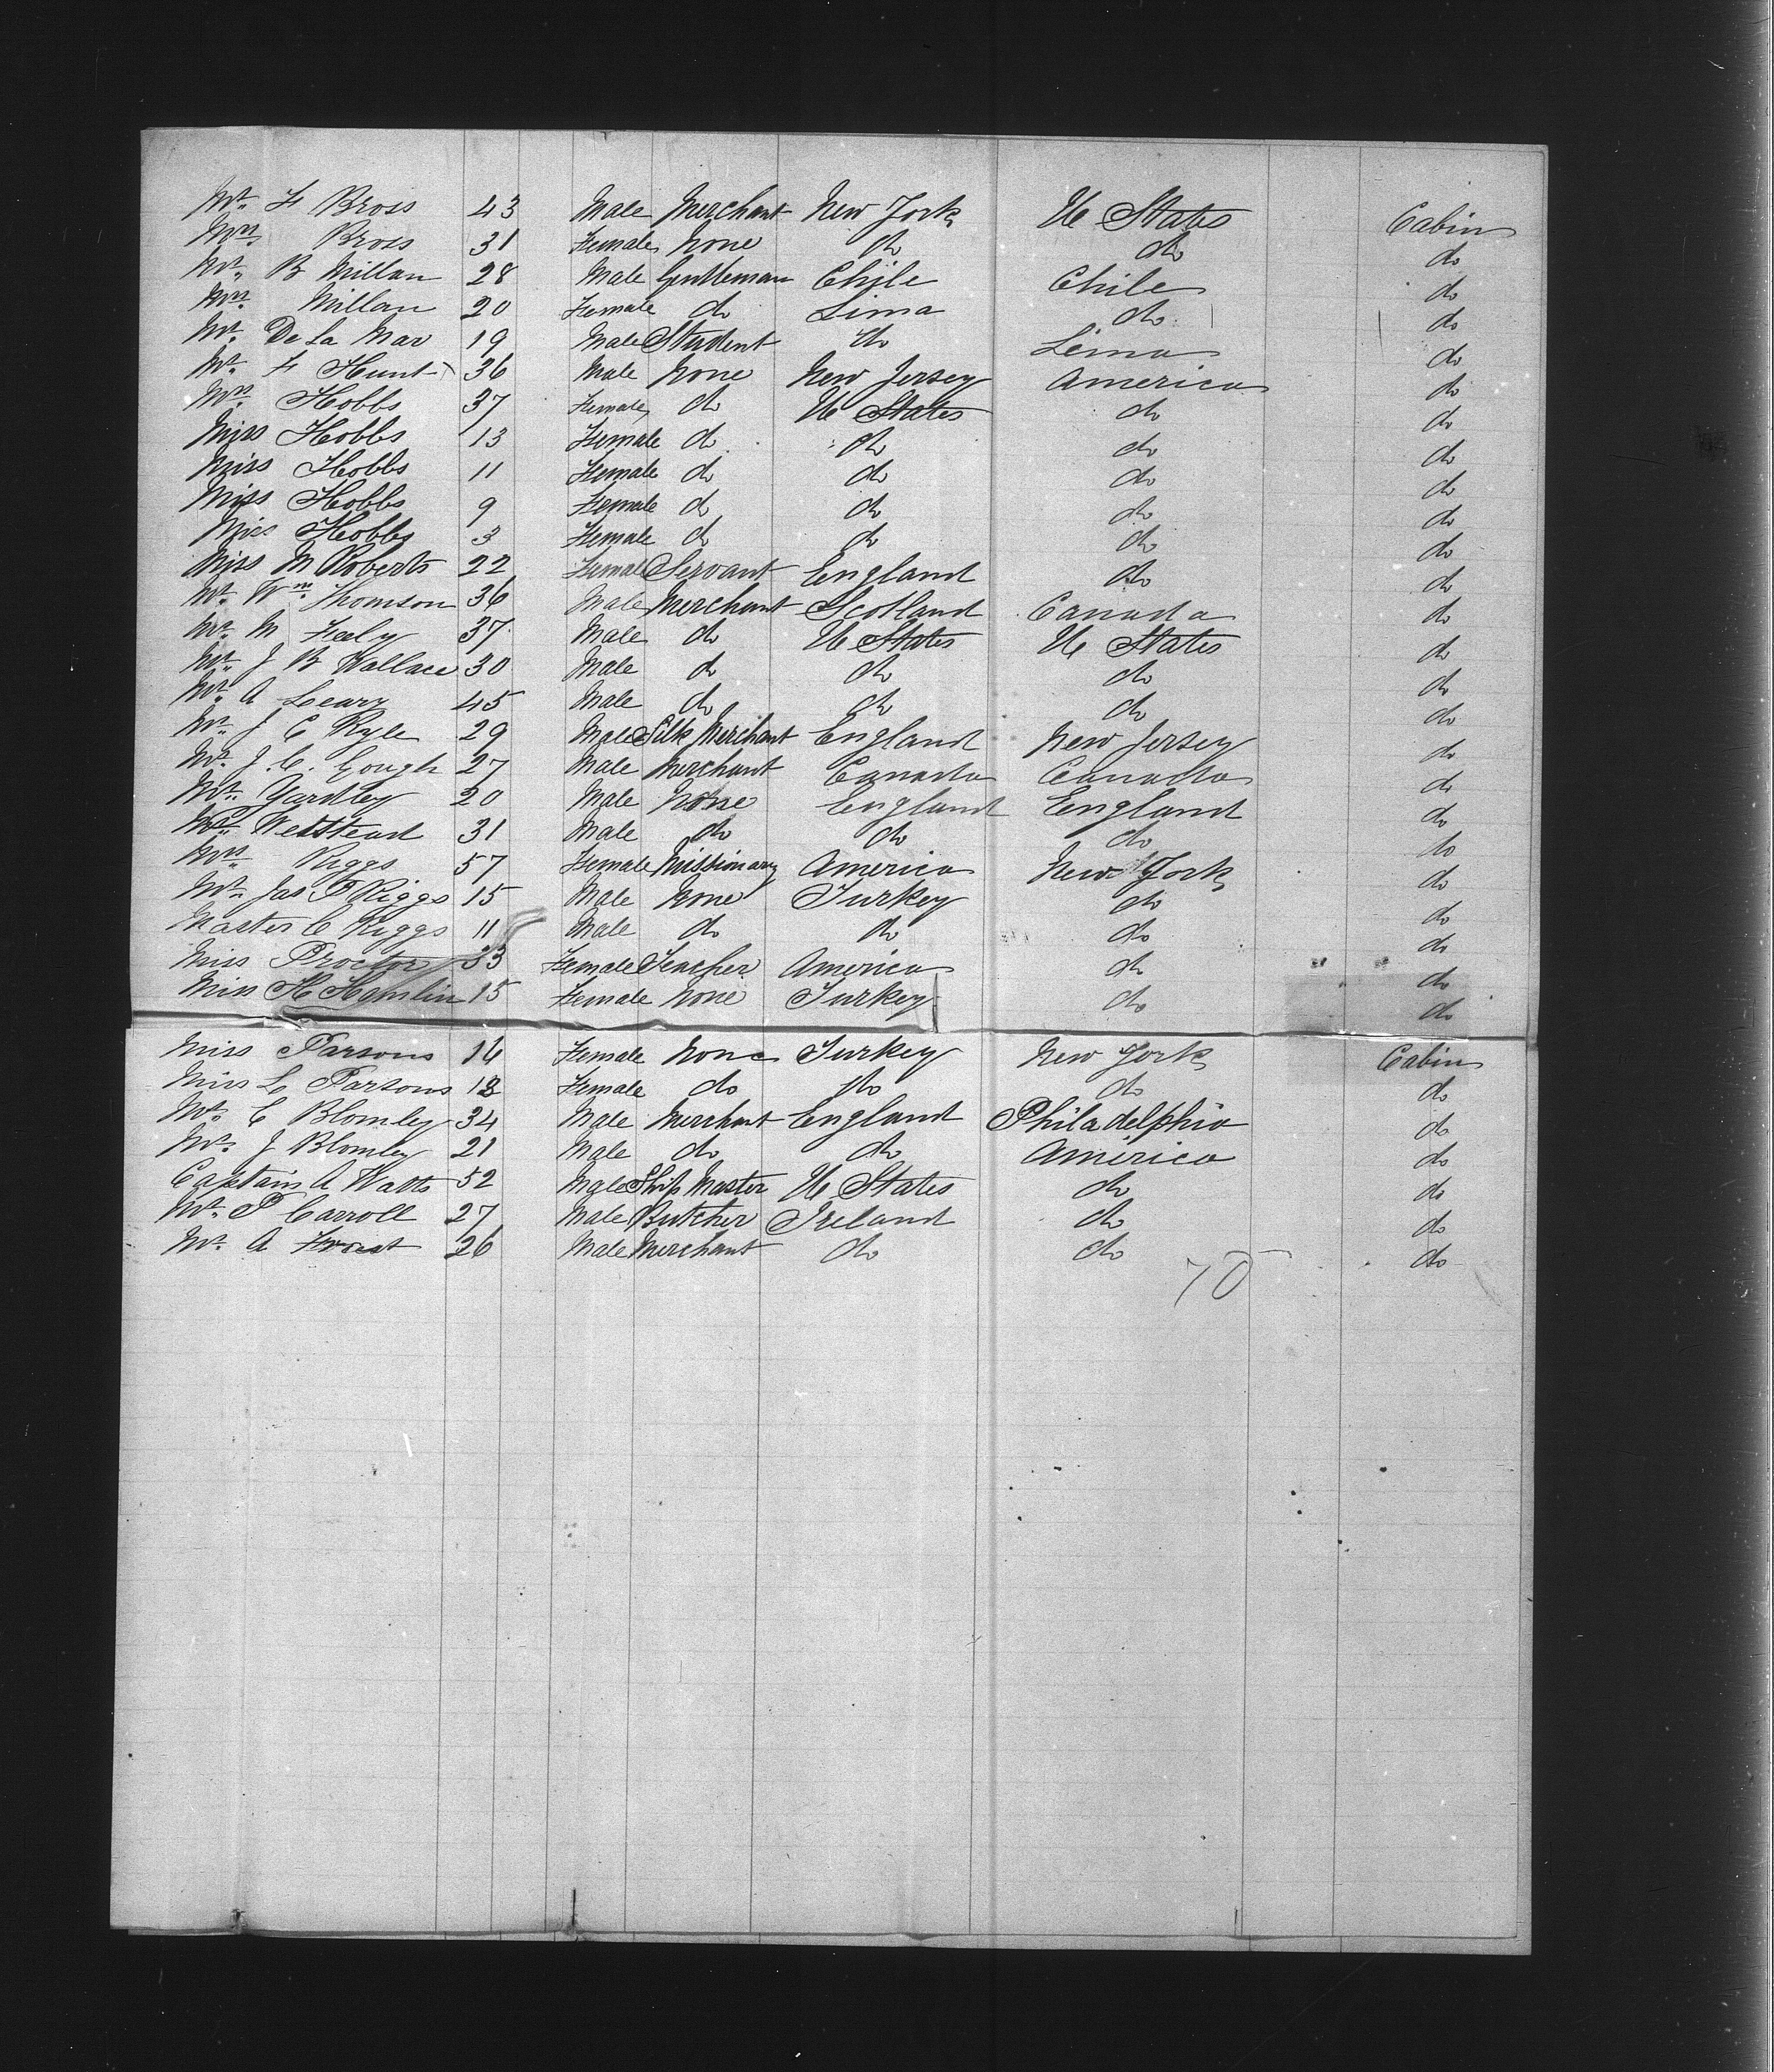 Mr. F Bross 43 Male Merchant New York U States Cabin
Mrs. Bross 31 Female None do do do
Mr. B Millan 28 Male Gentleman Chile Chile do
Mrs. Millan 20 Female do Lima do do
Mr. De La Mar 19 Male Student do Lima do
Mr. F Hunt 36 Male None New Jersey America do
Mrs. Hobbs 37 Female do U States do do
Miss Hobbs 13 Female do do do do
Miss Hobbs 11 Female do do do do
Miss Hobbs 9 Female do do do do
Miss Hobbs 3 Female do do do do
Miss M Roberts 22 Female Servant England do do
Mr. Wm. Thomson 36 Male Merchant Scotland Canada do
Mr. M Fealy 37 Male do U States U States do
Mr. J B Wallace 30 Male do do do do
Mr. A Leary 45 Male do do do do
Mr. J C Ryle 29 Male Silk Merchant England New Jersey do
Mr. J. C. Gough 27 Male Merchant Canada Canada do
Mr. Yardley 20 Male None England England do
Mr. Wellstead 31 Male do do do do
Mrs. Riggs 57 Female Missionary America New York do
Mr. Jas F Riggs 15 Male None Turkey do do
Master C Riggs 11 Male do do do do
Miss Proctor 33 Female Teacher America do do
Miss H Hamlin 15 Female None Turkey do do
Miss Parsons 16 Female None Turkey New York Cabin
Miss L Parsons 12 Female do do do do
Mr. C Blomley 34 Male Merchant England Philadelphia do
Mr. J Blomley 21 Male do do America do
Captain A Watts 52 Male Ship Master U States do do
Mr. P Carroll 27 Male Butcher Ireland do do
Mr. A 26 Male Merchant do do do
70